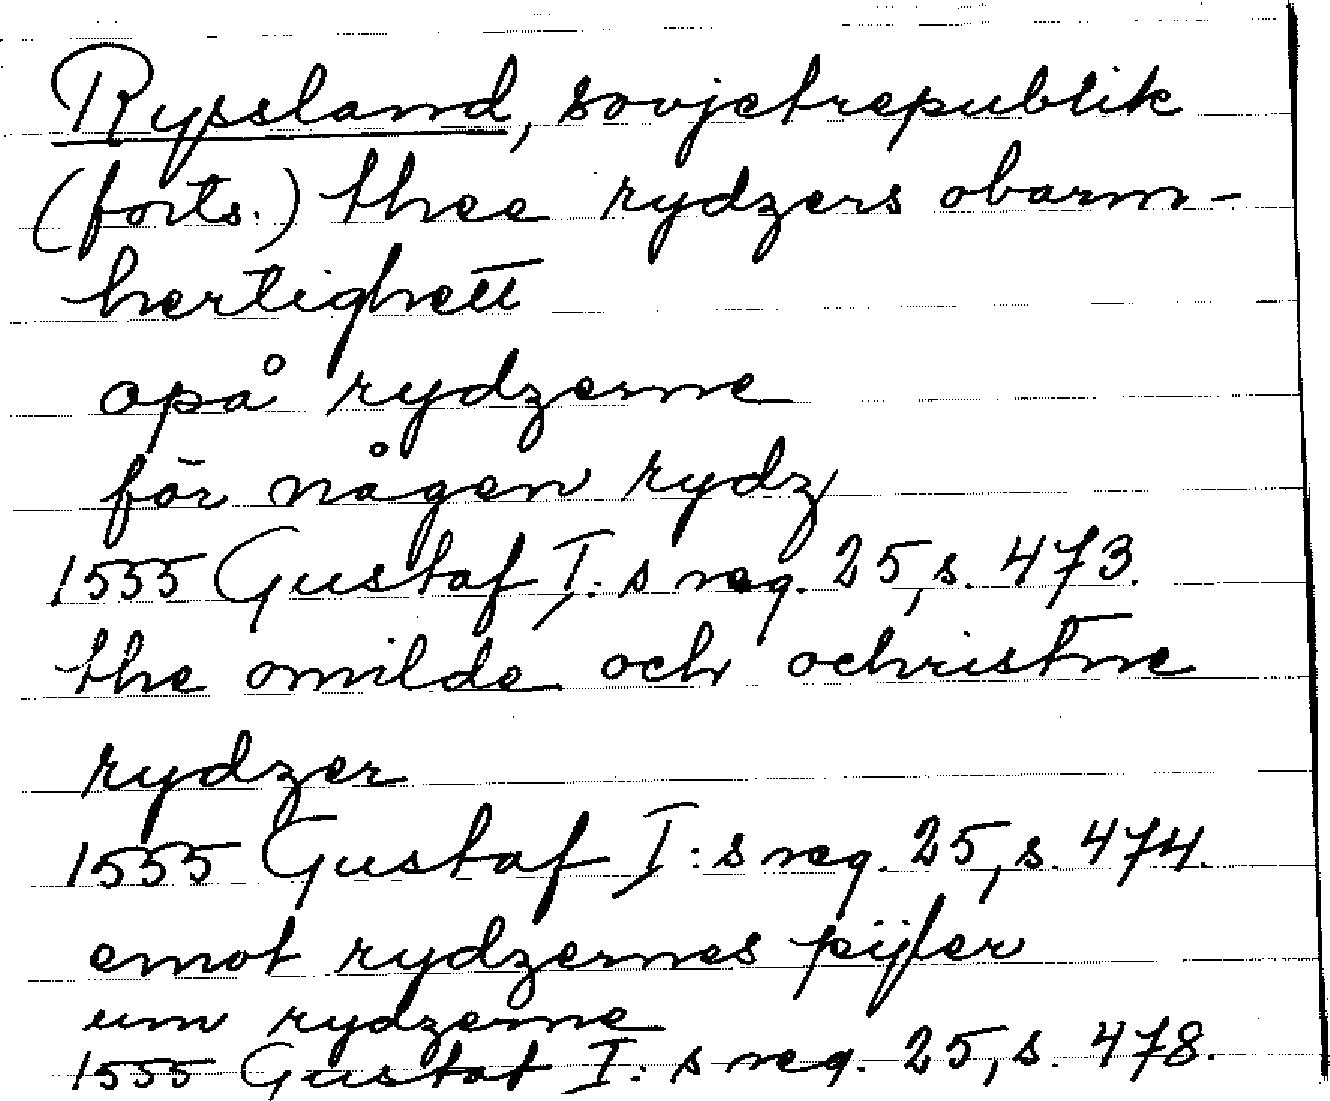 Ryssland, sovjetrepublik
(forts.) thee rydzers obarm-
hertighett
opå rydzerne
för någen rydz
1555 Gustaf I:s reg. 25, s. 473.
the omilde och ochristne
rydzer
1555 Gustaf I:s reg. 25, s. 474.
emot rydzernes pijler
um rydzerne
1555 Gustaf I:s reg. 25, s. 478.